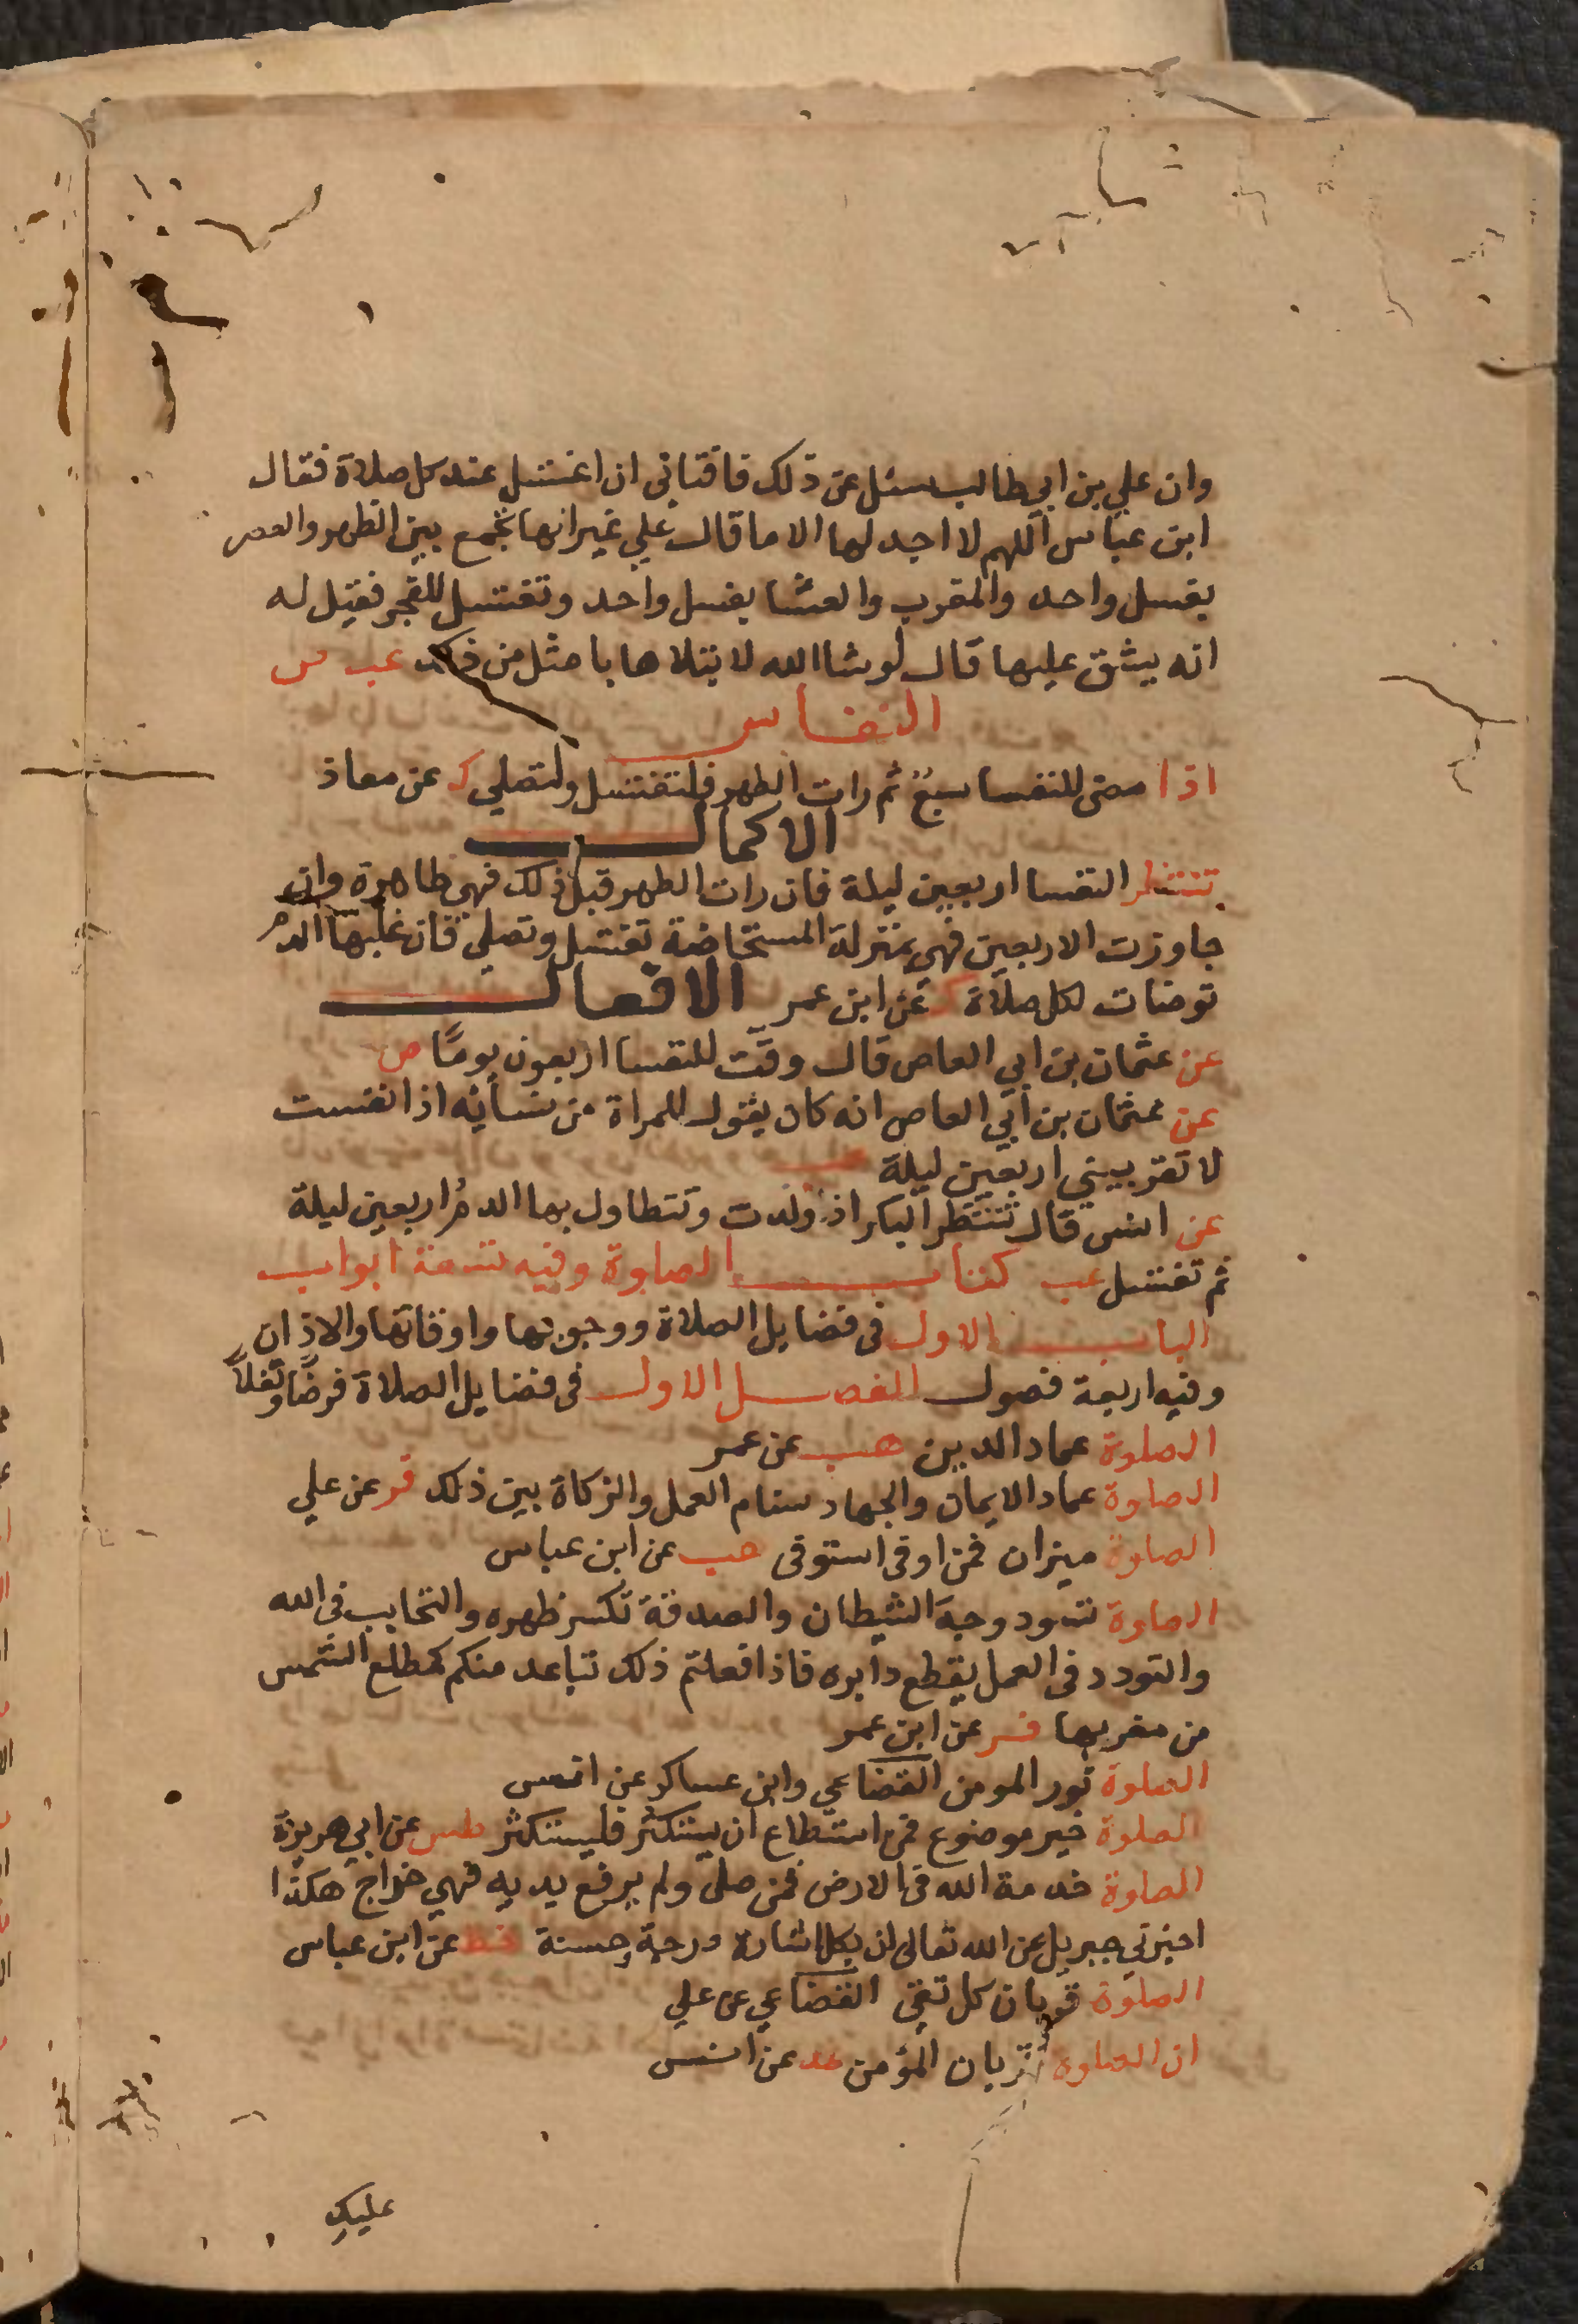 وان علي بن ابي طالب سئل عن ذلك فافتاني ان اغتسل عند كل صلاة فقال
ابن عباس اللهم لا اجد لها الا ما قال علي غير انها تجمع بين الظهر والعصر
بغسل واحد والمغرب والعشا بغسل واحد وتغتسل للفجر فقيل له
انه يشق عليها قال لو شا الله لابتلاها باا مثل من ذلك عب ص
النفاس
اذا مضى للنفسا سبع ثم رات الطهر فلتغتسل ولتصلي ك عن معاذ
الاكمال
تنتظر النفسا اربعين ليلة فان رات الطهر قبل ذلك فهي طاهرة وان
جاوزت الاربعين فهي بمنزلة المستحاضة تغتسل وتصلي فان غلبها الدم
توضات لكل صلاة ك عن ابن عمر الافعال
عن عثمان بن ابي العاص قال وقت للنفسا اربعون يومًا ص
عن عثمان بن ابي العاص انه كان يقول للمراة من نسائه اذا نفست
لا تقربيني اربعين ليلة
عن انس قال تنتظر البكر اذا ولدت وتتطاول بها الدمُ اربعين ليلة
ثم تغتسل عب كتاب الصلوة وفيه تسعة ابواب
الباب الاول في فضايل الصلاة ووجوبها واوقاتها والاذان
وفيه اربعة فصول الفصل الاول في فضايل الصلاة فرضًا ونفلاً
الصلوة عماد الدين هب عن عمر
الصلوة عماد الايمان والجهاد سنام العمل والزكاة بين ذلك فر عن علي
الصلوة ميزان فمن اوفى استوفى هب عن ابن عباس
الصلوة تسود وجه الشيطان والصدقة تكسر ظهره والتحابب في الله
والتودد في العمل يقطع دابره فاذا فعلتم ذلك تباعد منكم كمطلع الشمس
من مغربها فر عن ابن عمر
الصلوة نور المومن القضاعي وابن عساكر عن انس
الصلوة خير موضوع فمن استطاع ان يستكثر فليستكثر طس عن ابي هريرة
الصلوة خدمة الله في الارض فمن صلى ولم يرفع يديه فهي خداج هكذا
اخبرني جبريل عن الله تعالى ان بكل اشارة درجة وحسنة عن ابن عباس
الصلوة قربان كل تقي القضاعي عن علي
ان الصلوة قربان المؤمن عد عن انس
عليك